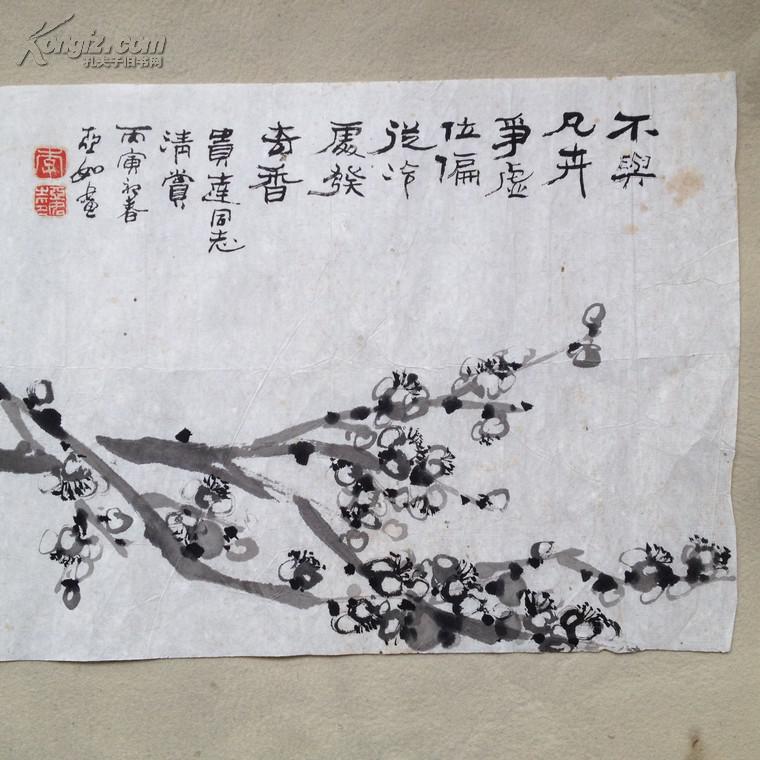 不與
凡卉
爭虛
位偏
從冷
處發
奇香
貴達同志
清賞
丙寅初春
亞如畫
李
Kongfz.com
孔夫子旧书网